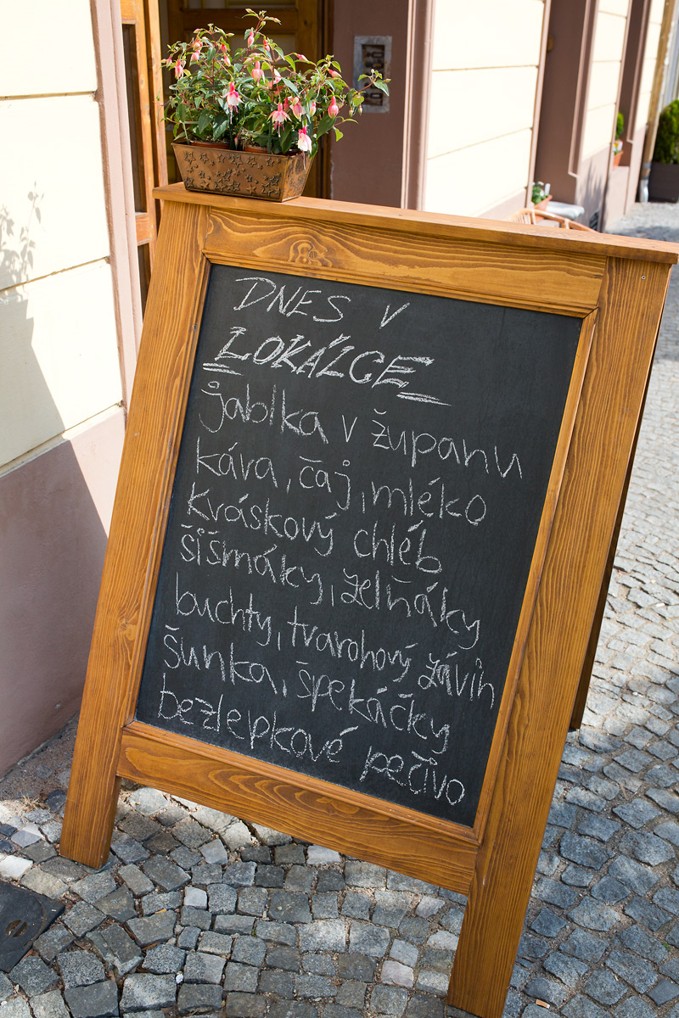 DNES V
LOKÁLCE
jablka v županu
káva, čaj, mléko
kváskový chléb
šišmáky, zelňáky
buchty, tvarohový závin
šunka, špekáčky
bezlepkové pečivo